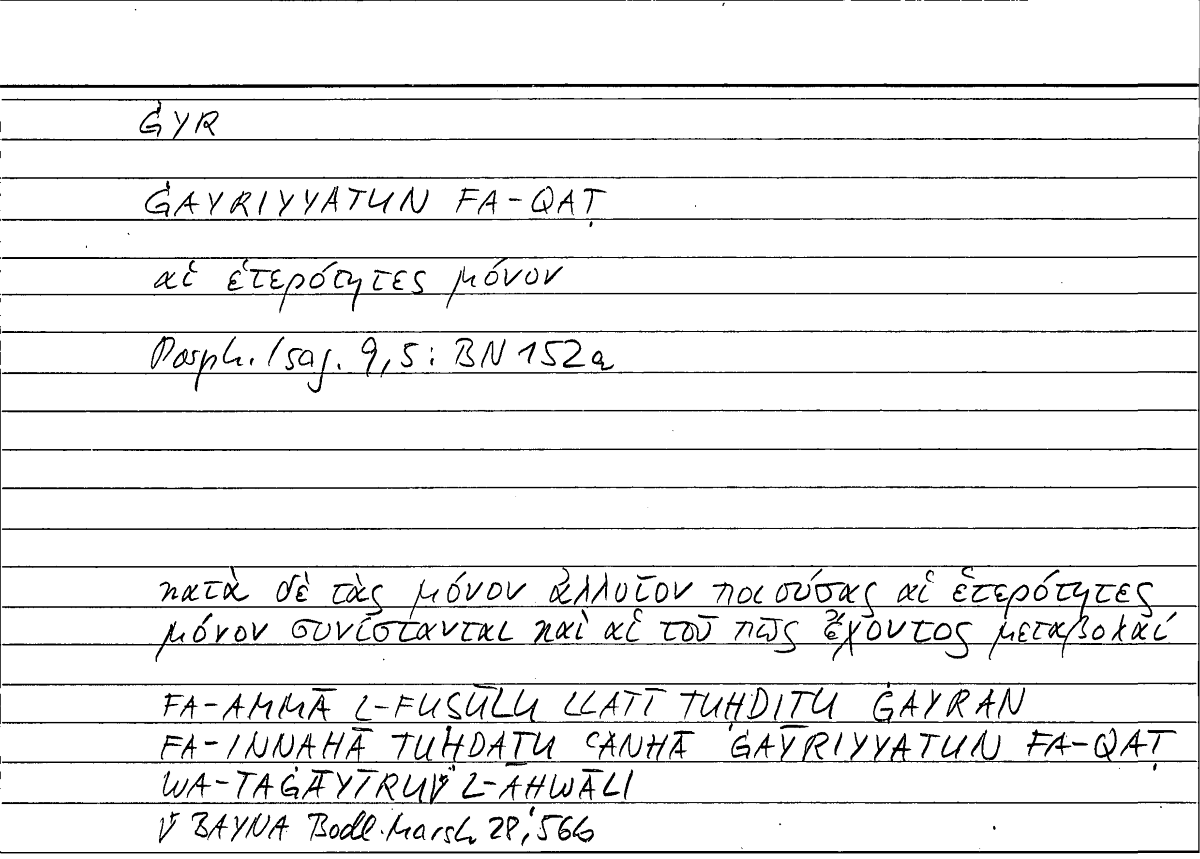 ĠYR
ĠAYRIYYATUN FA-QAṬ
αἱ ἑτερότητες μόνον
Porph. Isag. 9,5: BN 152a
κατὰ δὲ τὰς μόνον ἀλλοῖον ποιούσας αἱ ἑτερότητες
μόνον συνίστανται καὶ αἱ τοῦ πῶς ἔχοντος μεταβολαί
FA-AMMĀ L-FUṢŪLU LLATĪ TUḤDIṮU ĠAYRAN
FA-INNAHĀ TUḤDAṮU ʿANHĀ ĠAYRIYYATUN FA-QAṬ
WA-TAĠĀYĪRU L-AḤWĀLI
BAYNA Bodl. Marsh 28, 56b